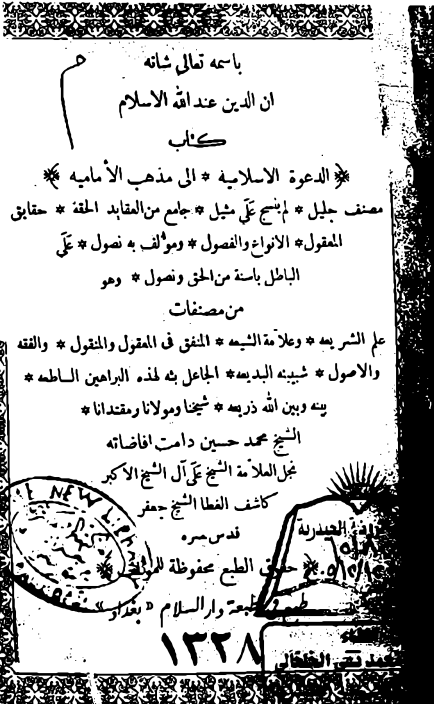 باسمه تعالى شانه
ان الدين عند الله الاسلام
كتاب
الدعوة الاسلامية * الى مذهب الأماميه
مصنف جليل * لم ينسج على مثيل * جامع من العقايد الحقة * حقايق
المعقول * الانواع والفصول * ومؤلف به نصول * على
الباطل باسنة من الحق ونصول * وهو
من مصنفات
علم الشريعه * وعلامة الشيعه * المنفق فى المعقول والمنقول * والفقه
والاصول * شبيبته البديعه * الجاعل بثه لهذه البراهين الساطعه *
بينه وبين الله ذريعه * شيخنا ومولانا ومقتدانا *
الشيخ محمد حسين دامت افاضاته
نجل العلامة الشيخ على آل الشيخ الأكبر
كاشف الغطا الشيخ جعفر
قدس سره
حقوق الطبع محفوظة
مطبعة دار السلام «بغداد»
١٣٢٨
NEW
الحيدرية